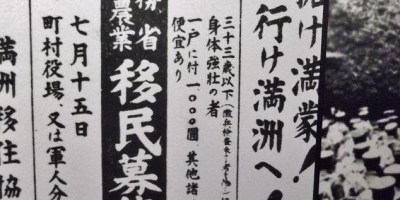 拓け満蒙!
行け満洲へ!
三十三歳以下
身体強壮の者
一戸に付一、〇〇〇圓、其他諸
便宜あり
省
農業移民募
七月十五日
町村役場、又は軍人分
満洲移住協